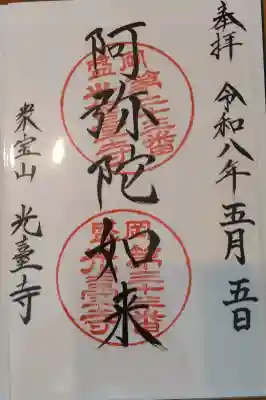 奉拝 令和八年五月五日
阿弥陀如来
衆宝山 光臺寺